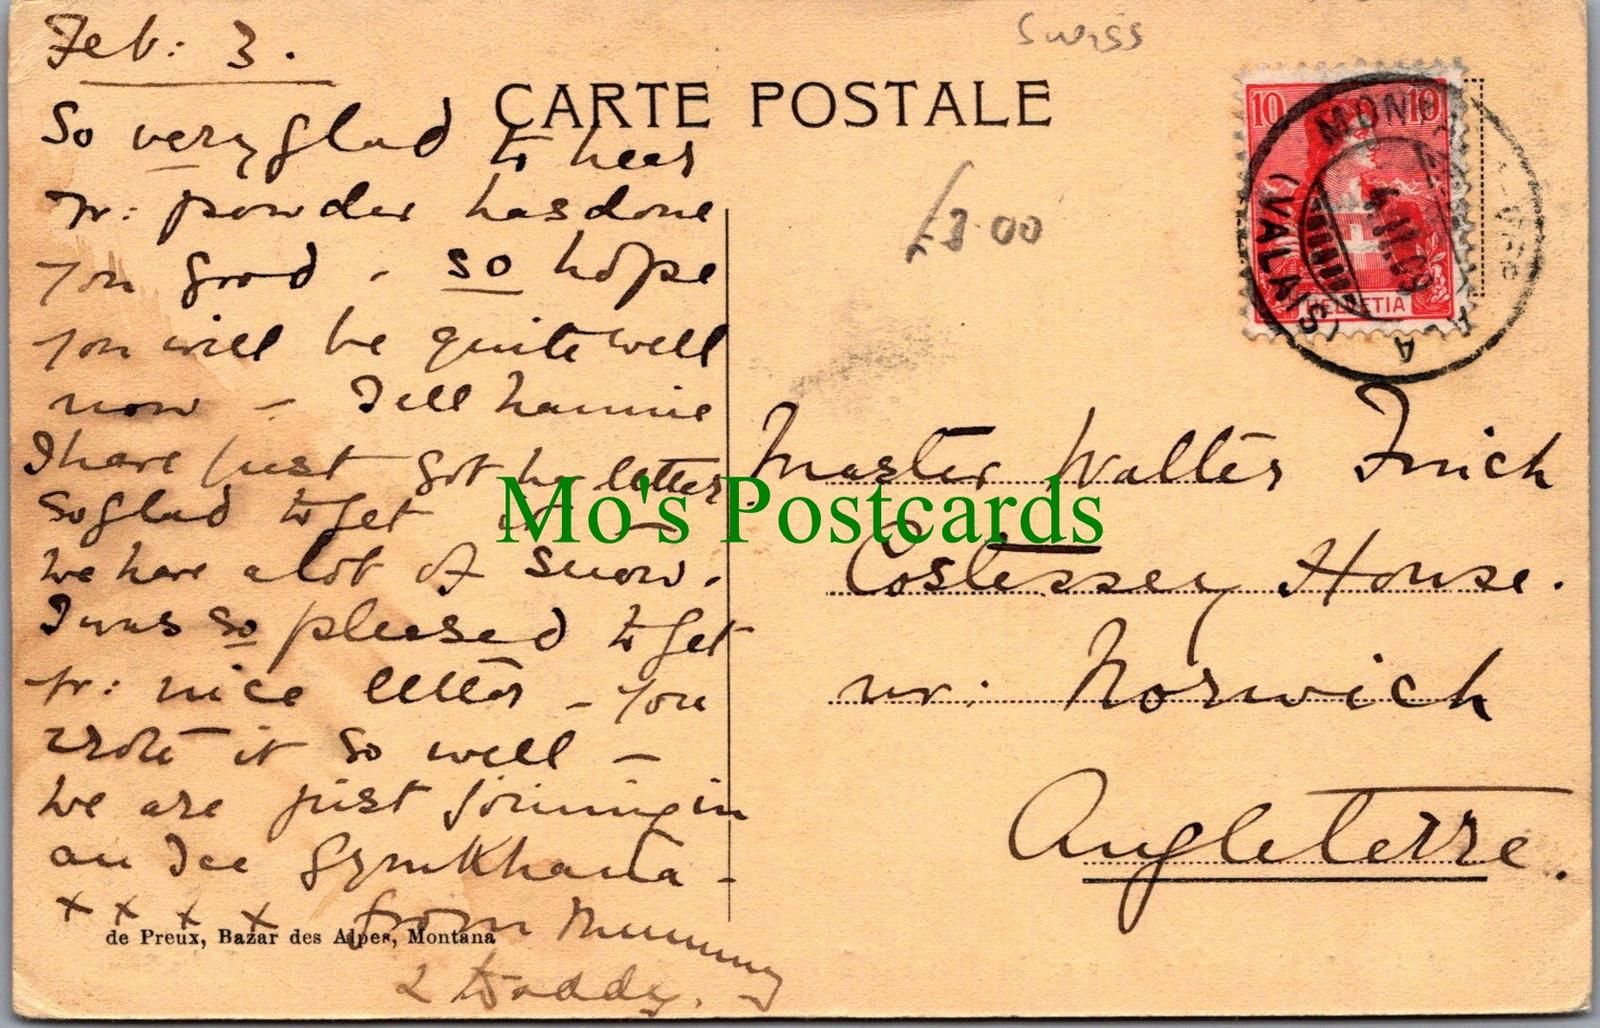 Feb: 3.
Swiss
CARTE POSTALE
So very glad to hear
yr: powder has done
you good - so hope
you will be quite well
now - Tell Nannie
I have just got her letter
so glad to get it -
We have a lot of snow.
I was so pleased to get
yr: nice letter - you
wrote it so well -
We are just joining in
an Ice Gymkhana -
x x x x from Mummy
& Daddy.
de Preux, Bazar des Alpes, Montana
£3.00
10 10
HELVETIA
MONTANA
(VALAIS)
Master Walter Finch
Costessey House.
nr: Norwich
Angleterre.
Mo's Postcards